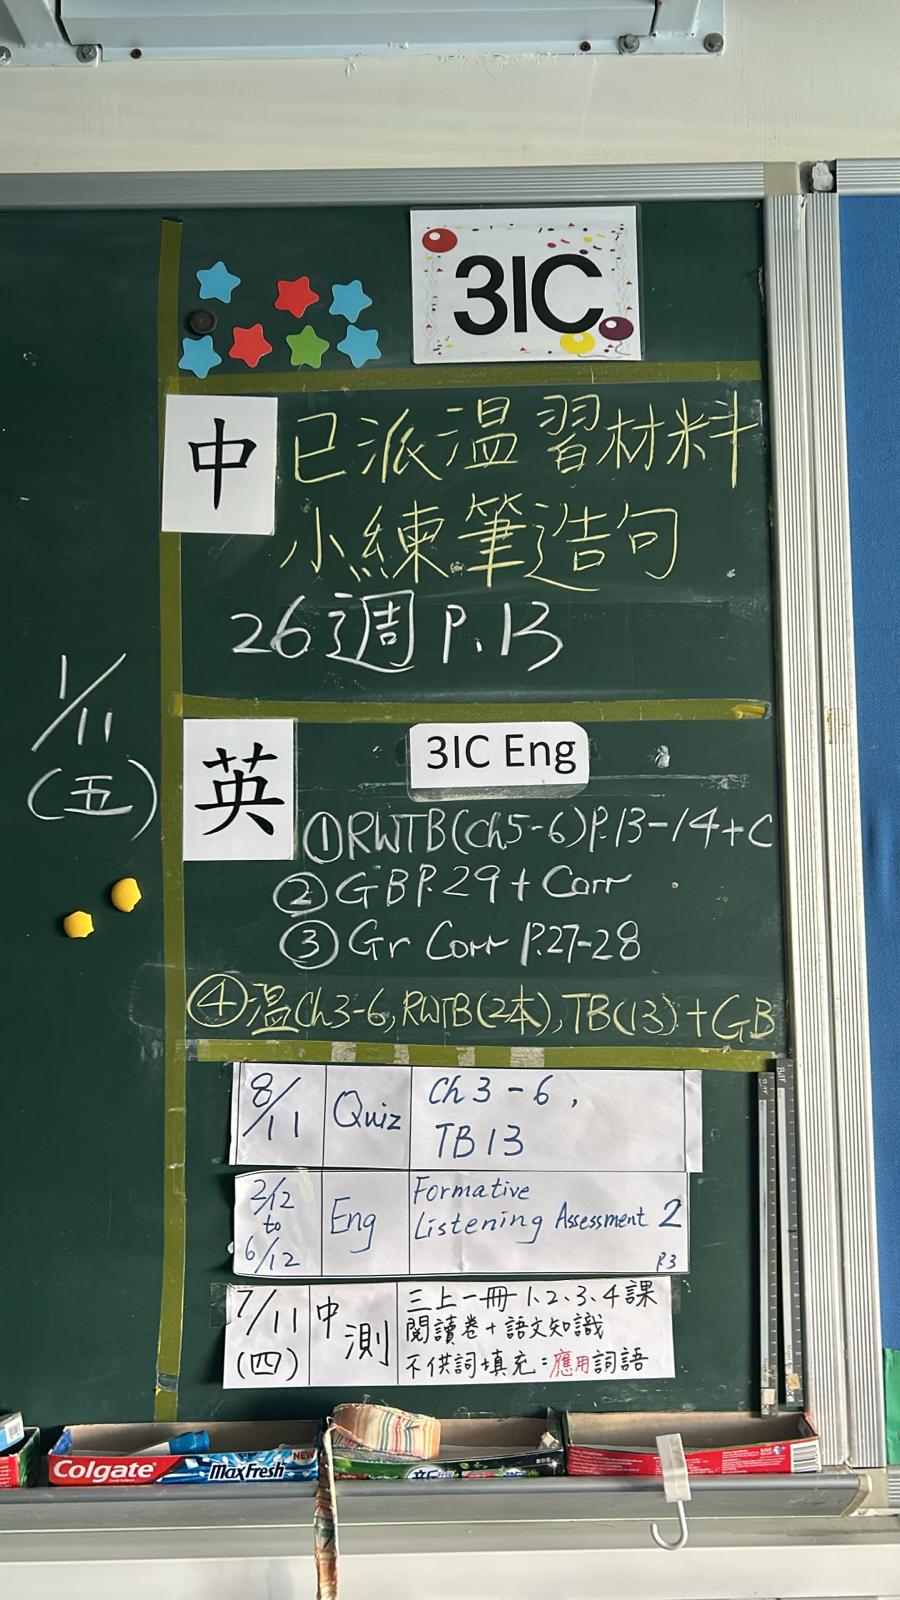 3IC
中
已派溫習材料
小練筆造句
26週 P.13
1/11
(五)
英
3IC Eng
①RWTB(Ch5-6)P.13-14+C
②GBP.29+Corr
③Gr Corr P.27-28
④溫Ch3-6,RWTB(2本),TB(13)+GB
8/11 Quiz Ch 3-6,
TB 13
2/12 to 6/12 Eng Formative
Listening Assessment 2
P.3
7/11 (四) 中測 三上一冊 1、2、3、4課
閱讀卷+語文知識
不供詞填充:應用詞語
Colgate MaxFresh NEW